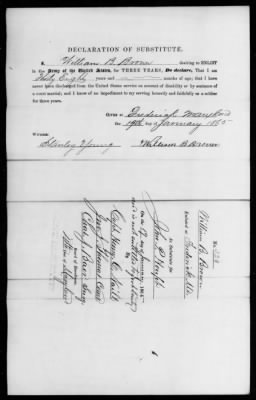 DECLARATION OF SUBSTITUTE.
I, William B. Brown desiring to ENLIST
in the Army of the United States, for THREE YEARS, Do declare, That I am
Thirty Eight years and — months of age; that I have
never been discharged from the United States service on account of disability or by sentence of
a court martial; and I know of no impediment to my serving honestly and faithfully as a soldier
for three years.
GIVEN at Frederick Maryland
The 19th day of January 1865
WITNESS:
Stanley Young William B Brown
No.
William B. Brown
Enlisted at Frederick Md.
As Substitute for
John
On the 19 day of January 1865
By
Capt. James C. Smith
Geo. Thomas Com
Chas. J. Baer Surg
Board of Enrolment
Maryland